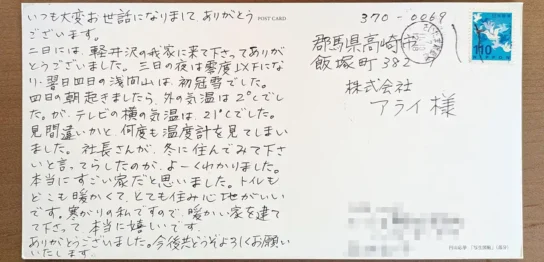 いつも大変お世話になりまして ありがとう
ございます。
二日には、軽井沢の我家に来て下さってありが
とうございました。三日の夜は零度以下にな
り、翌日四日の浅間山は、初冠雪でした。
四日の朝起きましたら、外の気温は2℃でし
た。が、テレビの横の気温は、21℃でした。
見間違いかと、何度も温度計を見てしまい
ました。社長さんが、冬に住んでみて下さ
いと言ってらしたのが、よーくわかりました。
本当にすごい家だと思いました。トイレも
どこも暖かくて、とても住み心地がいい
です。寒がりの私ですので、暖かい家を建て
て下さって、本当に嬉しいです。
ありがとうございました。今後共どうぞよろしくお願い
いたします。
POST CARD
370-0069
群馬県高崎市
飯塚町382
株式会社
アライ様
110
NIPPON